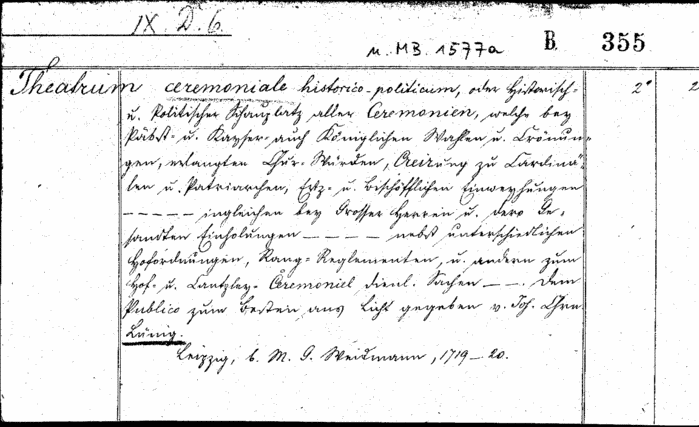 IX. D. 6.
u. MB. 1577a B. 355
Theatrum ceremoniale historico-politicum, oder Historisch- 2° 2
u. Politischer Schauplatz aller Ceremonien, welche bey
Päbst- u. Kayser- auch Königlichen Wahlen u. Crönun-
gen, erlangten Chur-Würden, Creirung zu Cardinä-
len u. Patriarchen, Ertz- u. Bischöfflichen Einweyhungen
– – – – – ingleichen bey Grosser Herren u. dero Ge-
sandten Einholungen – – – – – nebst unterschiedlichen
Hofordnungen, Rang-Reglementen, u. andern zum
Hof- u. Cantzley-Ceremoniel dienl. Sachen – –. Dem
Publico zum Besten ans Licht gegeben v. Joh. Chrn
Lünig.
Leipzig, b. M. G. Weidmann, 1719–20.